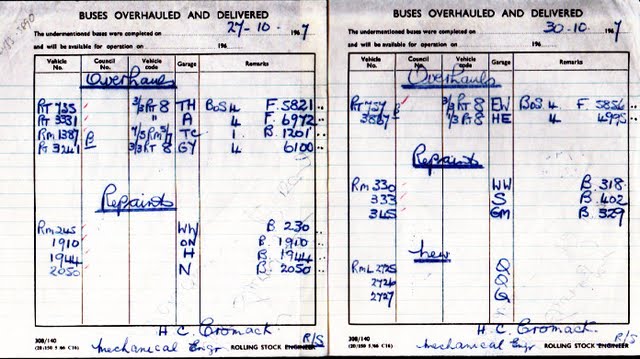 BUSES OVERHAULED AND DELIVERED
The undermentioned buses were completed on 27-10- 1967
and will be available for operation on 196
Vehicle No. Council No. Vehicle code Garage Remarks
Overhauls
RT 735 3/3 RT 8 TH BoS 4 F. 5821
RT 3331 " A 4 F. 6972
RM 1387 B 4/5 RM 5/7 TC 1. B. 1201
RT 3241 3/3 RT 8 GY 4 6100
Repaints
RM 245 WW B. 230
1910 ON B. 1910
1944 H B. 1944
2050 N B. 2050
H. C. Cromack.
308/140
(20/150 5/66 C16) Mechanical Engr ROLLING STOCK ENGINEER R/S
BUSES OVERHAULED AND DELIVERED
The undermentioned buses were completed on 30-10- 1967
and will be available for operation on 196
Vehicle No. Council No. Vehicle code Garage Remarks
Overhauls
RT 757 B 3/3 RT 8 EW BoS 4 F. 5856
3887 1/3 RT 8 HE 4 4995
Repaints
RM 330 WW B. 318
333 S B. 402
345 GM B. 329
New
RML 2725 Q
2726 Q
2727 Q
H. C. Cromack.
308/140
(20/150 5/66 C16) Mechanical Engr ROLLING STOCK ENGINEER R/S